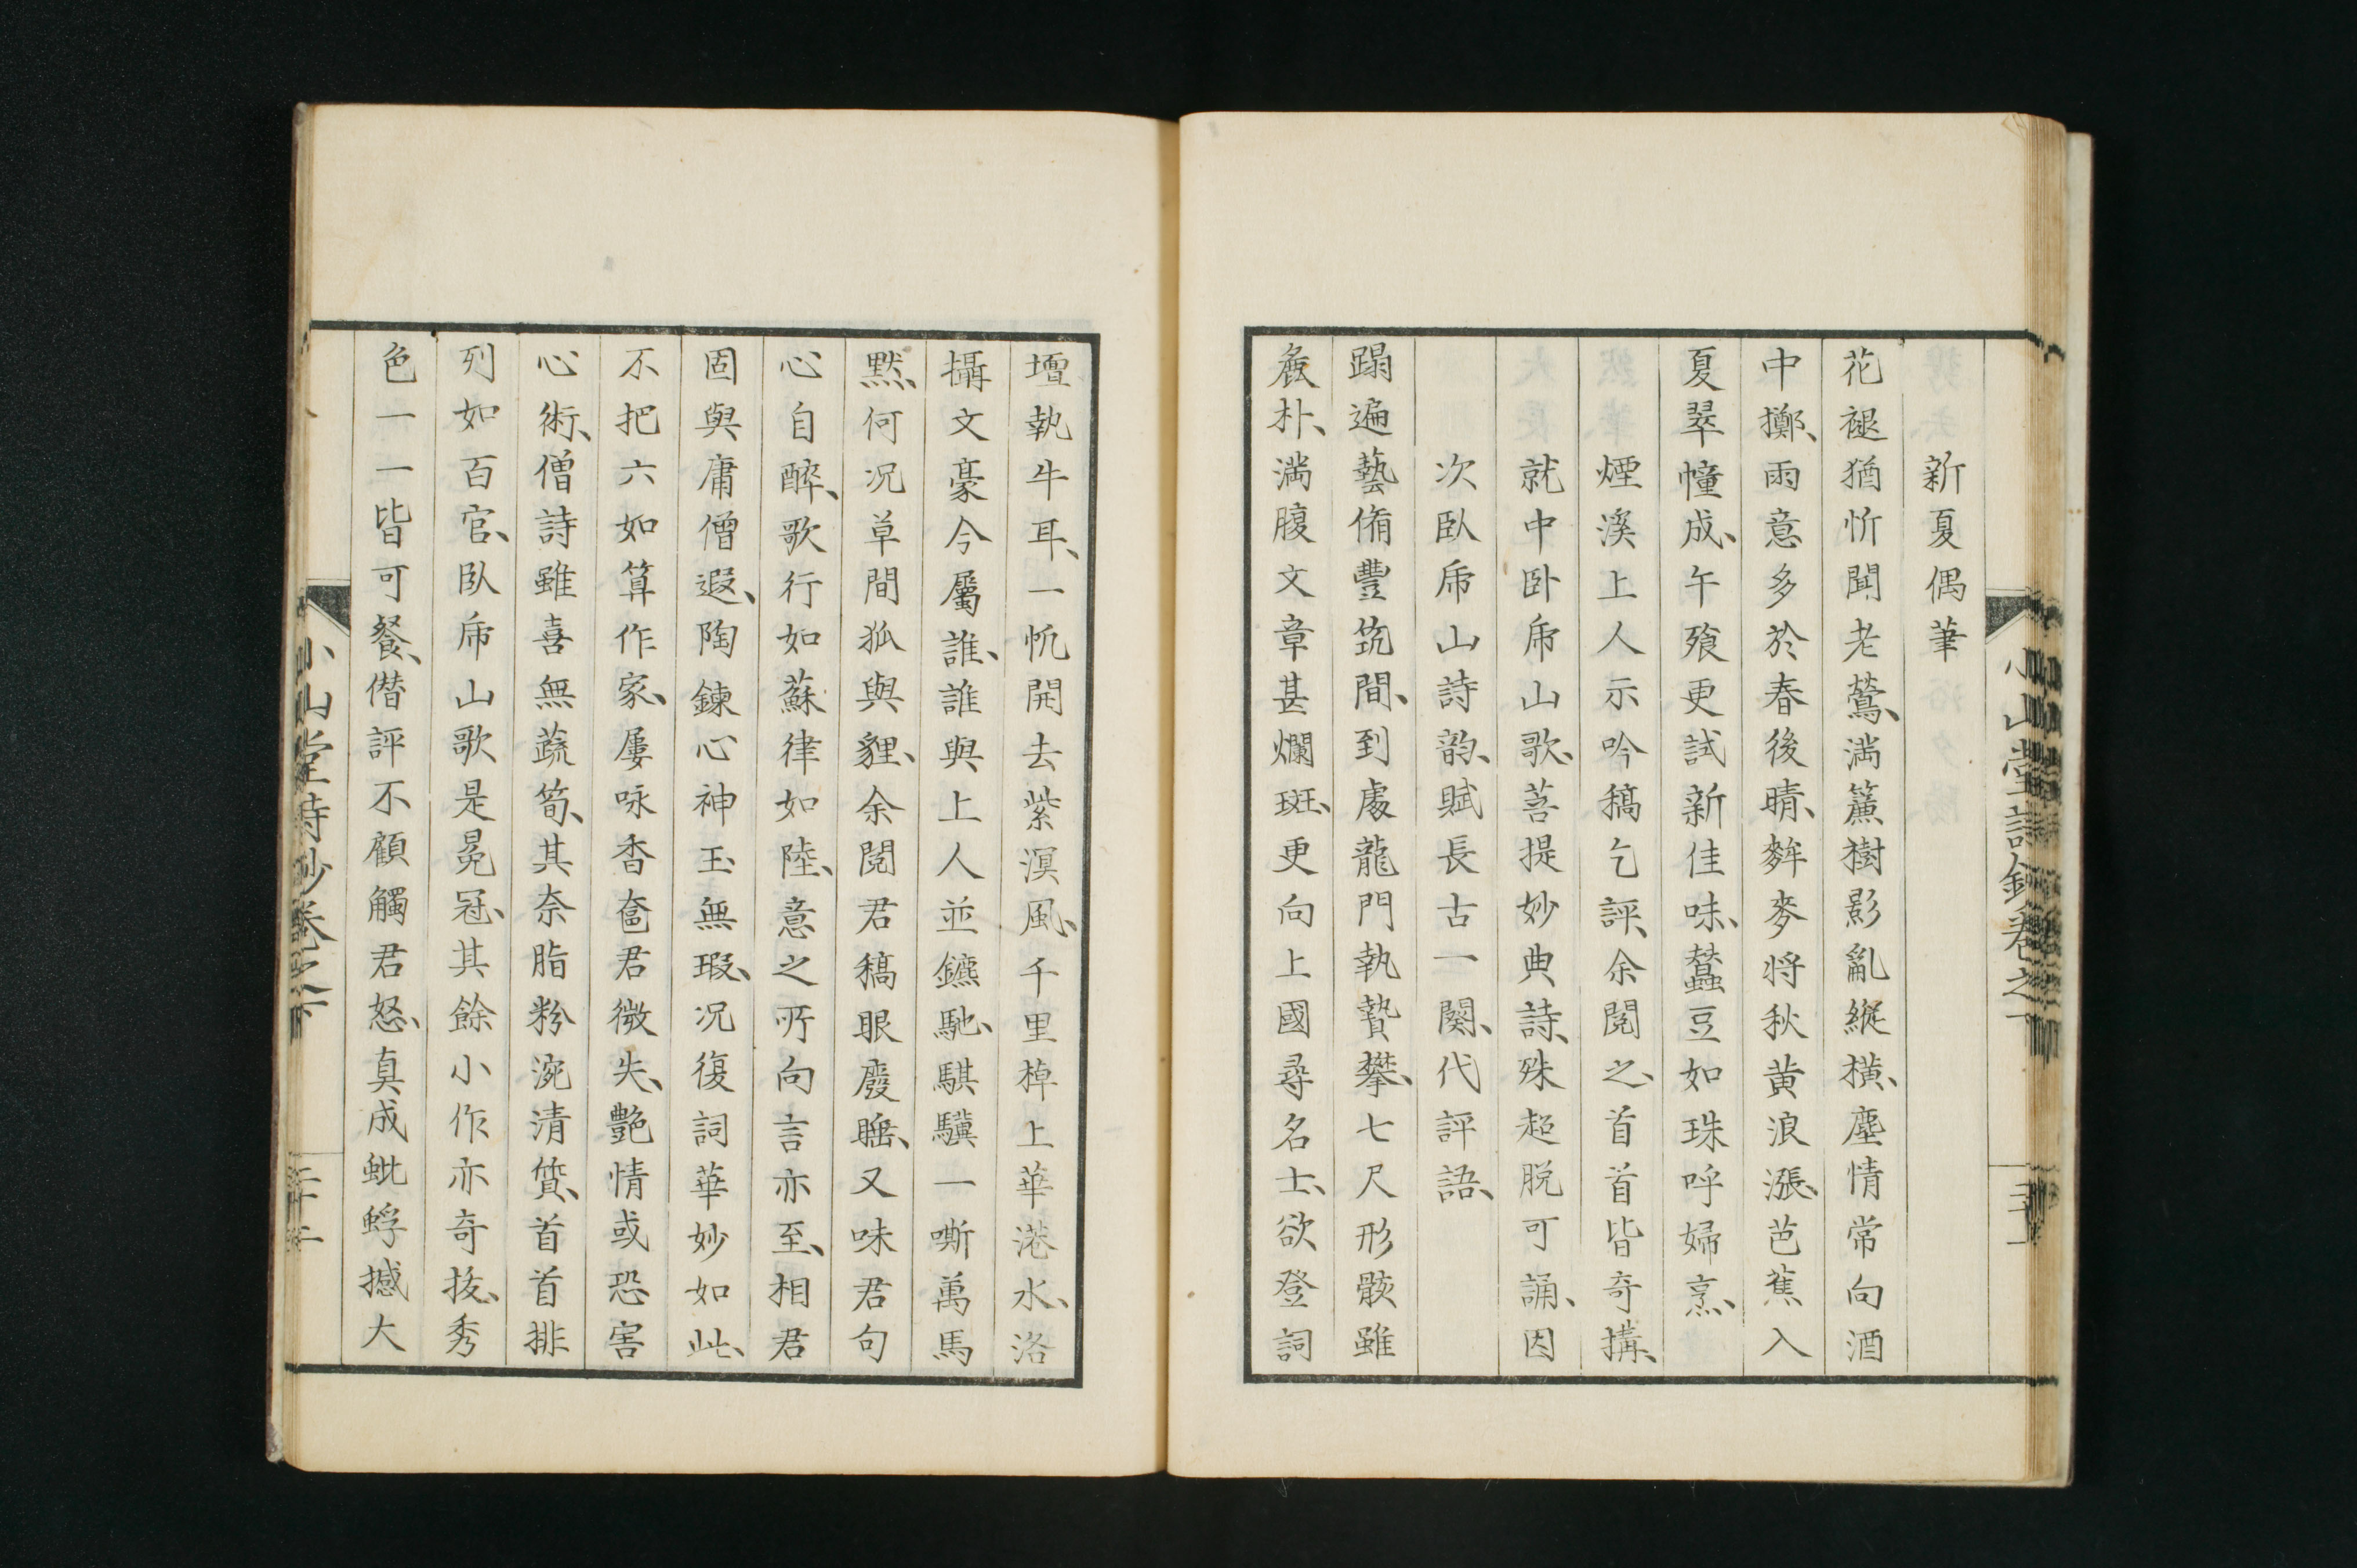 新夏偶筆
花褪猶忻聞老鶯、満簾樹影亂縱橫、塵情常向酒
中擲、雨意多於春後晴、麰麥将秋黄浪漲、芭蕉入
夏翠幢成、午飱更試新佳味、蠶豆如珠呼婦烹、
煙溪上人示吟稿乞評、余閲之、首首皆奇搆、
就中卧乕山歌、菩提妙典詩、殊超脱可誦、因
次臥乕山詩韵、賦長古一闋、代評語、
蹋遍藝備豐筑間、到處龍門執贄攀、七尺形骸雖
麁朴、満腹文章甚爛斑、更向上國尋名士、欲登詞
壇執牛耳、一帆開去紫溟風、千里棹上華港水、洛
攝文豪今屬誰、誰與上人並鑣馳、騏驥一嘶萬馬
黙、何况草間狐與貍、余閲君稿眼廢睡、又味君句
心自醉、歌行如蘇律如陸、意之所向言亦至、相君
固與庸僧遐、陶鍊心神玉無瑕、况復詞華妙如此、
不把六如算作家、屢咏香奩君微失、艶情或恐害
心術、僧詩雖喜無蔬筍、其奈脂粉涴清質、首首排
列如百官、臥乕山歌是冕冠、其餘小作亦奇抜、秀
色一一皆可餐、僭評不顧觸君怒、真成蚍蜉撼大
小山堂詩鈔卷之下